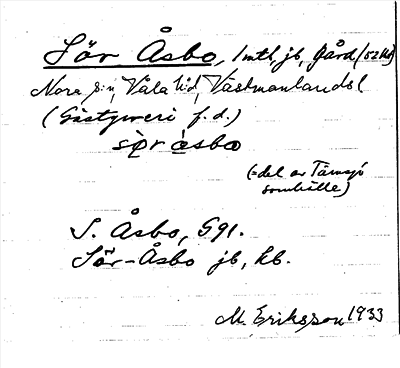 Sör Åsbo, 1 mtl, jb, gård (52 Kd)
Nora sn, Våla hd, Västmanlands l
(Gästgiveri f. d.)
sör åsbo
(= del av Tärnsjö
samhälle)
S. Åsbo, G91.
Sör-Åsbo jb, kb.
M. Eriksson 1933